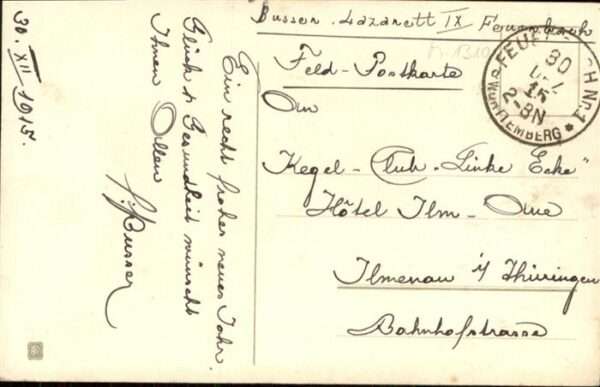 Busser. Lazarett IX Feuerbach
Feld-Postkarte
An
Kegel-Club. "Linke Ecke"
Hôtel Ilm-Aue
Ilmenau i/ Thüringen
Bahnhofstrasse
FEUERBACH No. 1
30
DEZ.
15
2-3N
WÜRTTEMBERG
30. XII 1915.
Ein recht frohes neues Jahr.
Glück & Gesundheit wünscht
Ihnen Allen
Busser